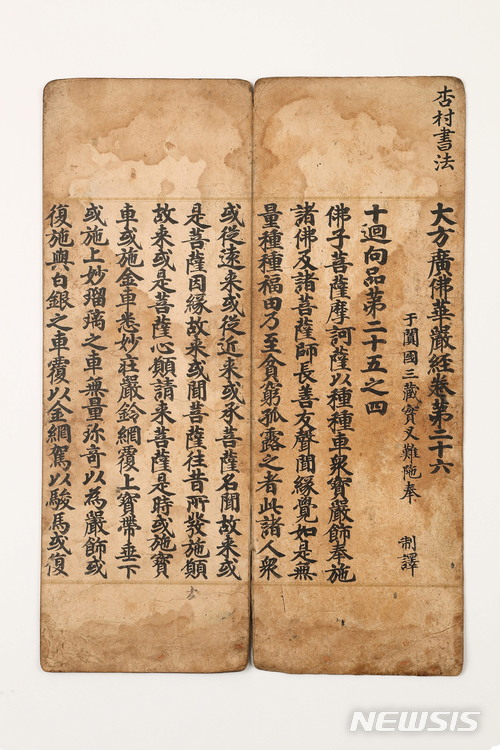 杏村書法
大方廣佛華嚴経卷第二十六
于闐國三藏實叉難陁奉 制譯
十迴向品第二十五之四
佛子菩薩摩訶薩以種種車衆寶嚴飾奉施
諸佛及諸菩薩師長善友聲聞縁覺如是無
量種種福田乃至貧窮孤露之者此諸人衆
或從遠来或從近来或承菩薩名聞故来或
是菩薩因縁故来或聞菩薩往昔所發施願
故来或是菩薩心願請来菩薩是時或施寶
車或施金車悉妙莊嚴鈴網覆上寶帶垂下
或施上妙瑠璃之車無量珎奇以為嚴飾或
復施與白銀之車覆以金網駕以駿馬或復
NEWSIS